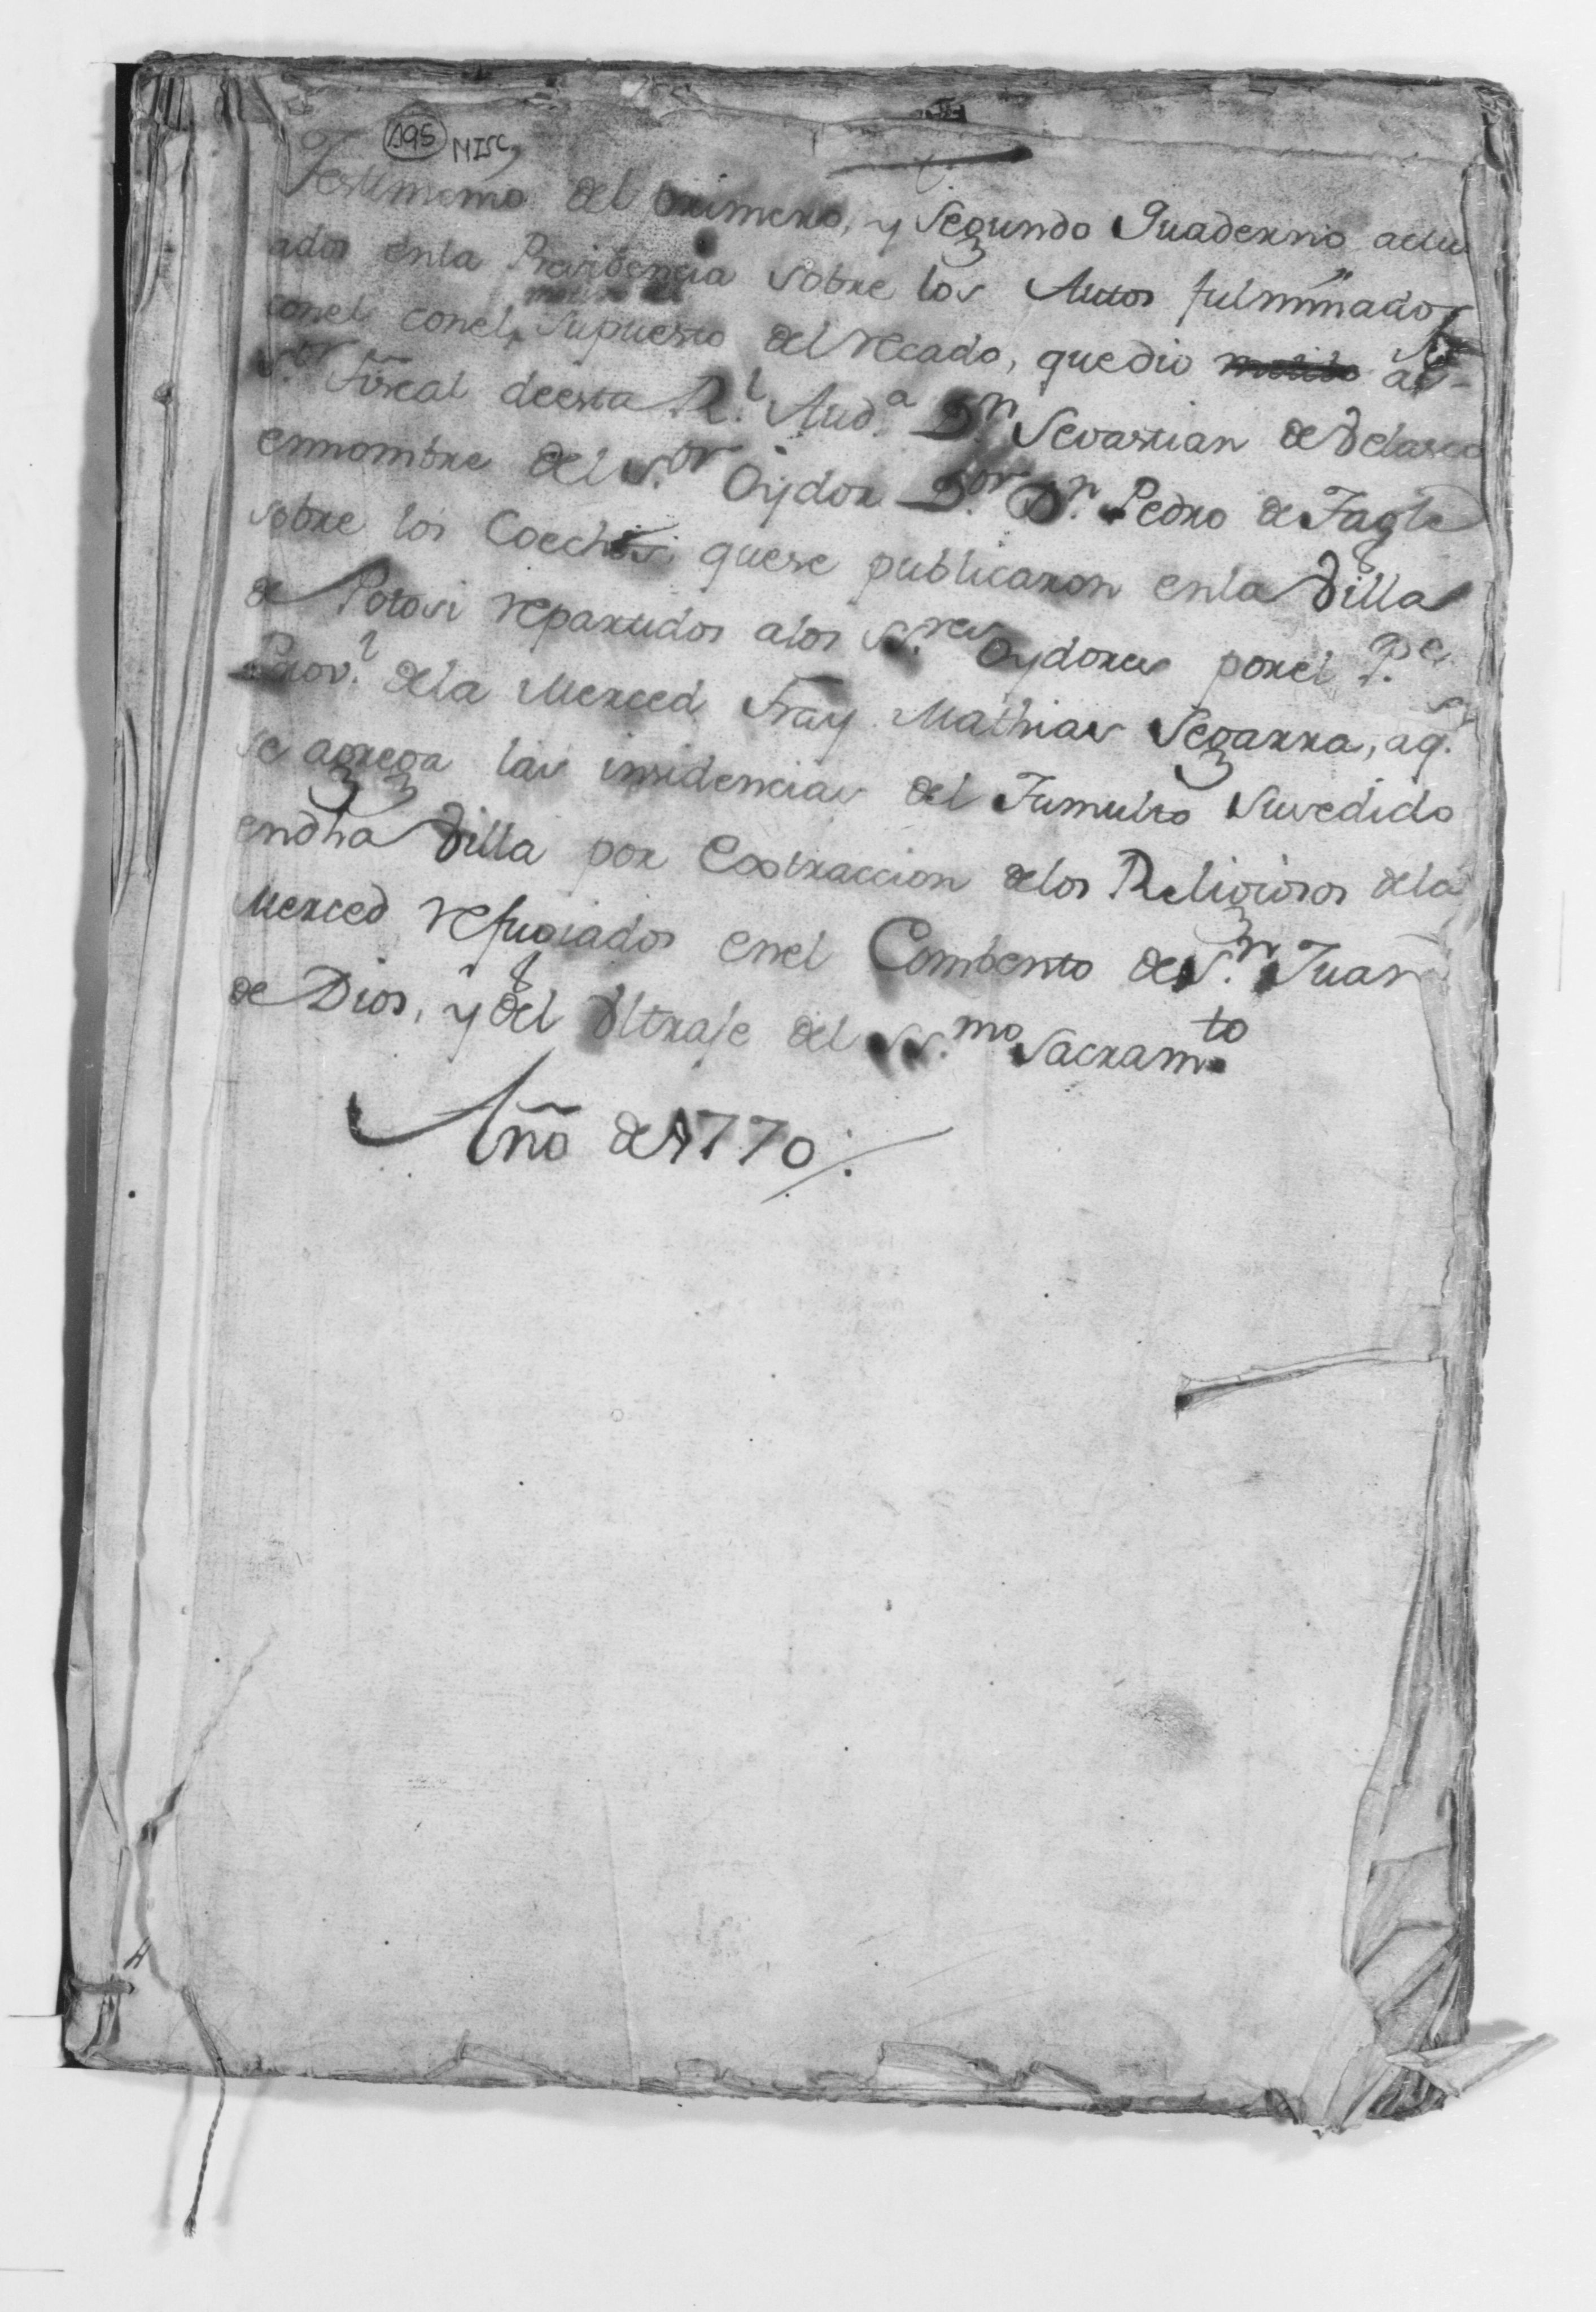 195 MISC,
Testimonio del primero, y Segundo Quaderno actu
ados enla Presidencia sobre los Autos fulminados
conel conel motivo del supuesto del recado, quedio al
S.or Fiscal deesta R.l Aud.a D.n Sevastian de Velasco
ennombre del S.or Oydor D.or D.n Pedro de Tagle
sobre los Coechos, quese publicaron enla Villa
de Potosi repartidos alos SS.res Oydores porel P.e
Prov.l dela Merced Fray Mathias Segarra, aq.e
se agrega las insidencias del Tumulto Suvedido
endha Villa por Extraccion delos Religiosos dela
Merced refugiados enel Combento de S.n Juan
de Dios, y del Vltraje del SS.mo Sacram.to
Año de 1770